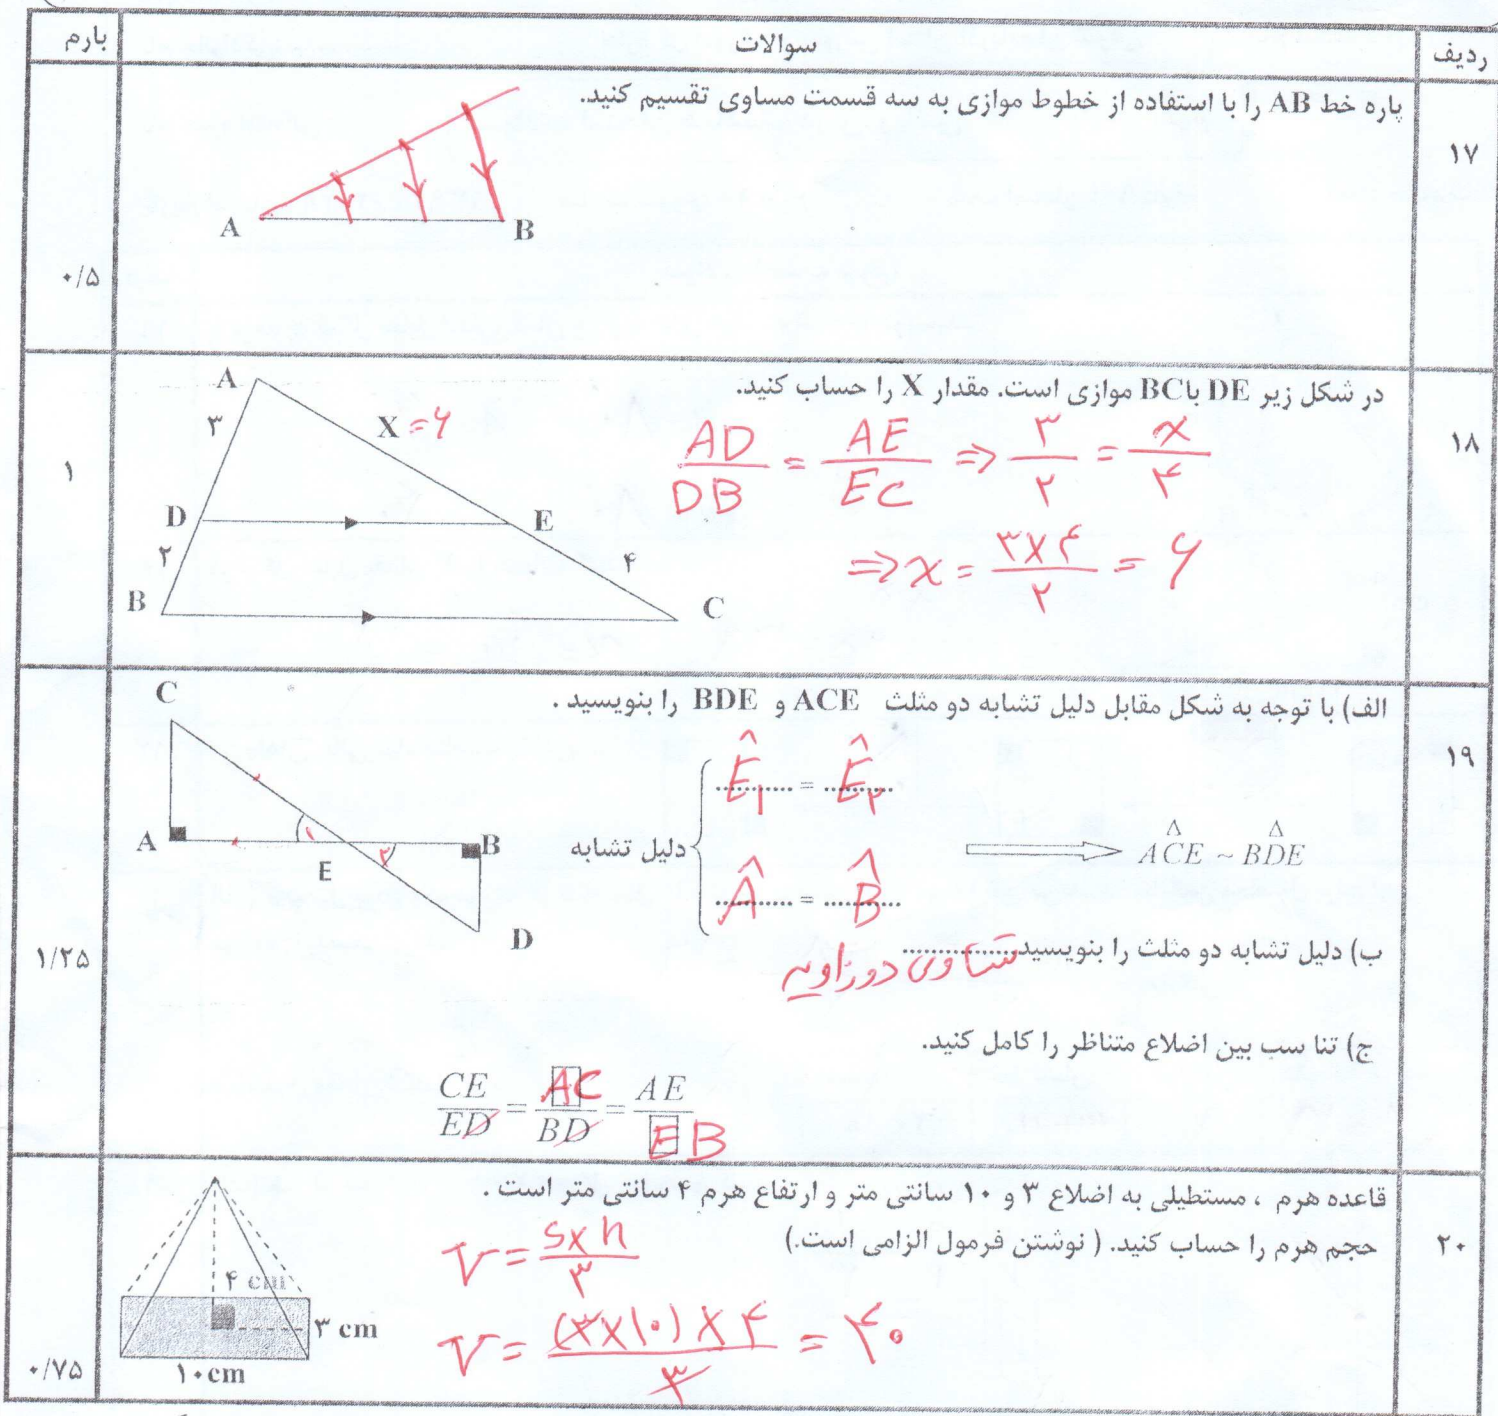 ردیف سوالات بارم
۱۷
پاره خط AB را با استفاده از خطوط موازی به سه قسمت مساوی تقسیم کنید.
A B
۰/۵
۱۸
در شکل زیر DE با BC موازی است. مقدار X را حساب کنید.
A
۳ X = ۶
D E
۲ ۴
B C
AD/DB = AE/EC => ۳/۲ = x/۴
=> x = ۳×۴/۲ = ۶
۱
۱۹
الف) با توجه به شکل مقابل دلیل تشابه دو مثلث ACE و BDE را بنویسید .
C
A ۱ B
E ۲
D
دلیل تشابه
Ê۱ = Ê۲
Â = B̂
ACE ~ BDE
ب) دلیل تشابه دو مثلث را بنویسید............... تساوی دو زاویه
۱/۲۵
ج) تنا سب بین اضلاع متناظر را کامل کنید.
CE/ED = AC/BD = AE/EB
۲۰
قاعده هرم ، مستطیلی به اضلاع ۳ و ۱۰ سانتی متر و ارتفاع هرم ۴ سانتی متر است .
حجم هرم را حساب کنید. ( نوشتن فرمول الزامی است.)
V = S×h/۳
V = (۳×۱۰)×۴/۳ = ۴۰
۴ cm
۳ cm
۱۰cm
۰/۷۵